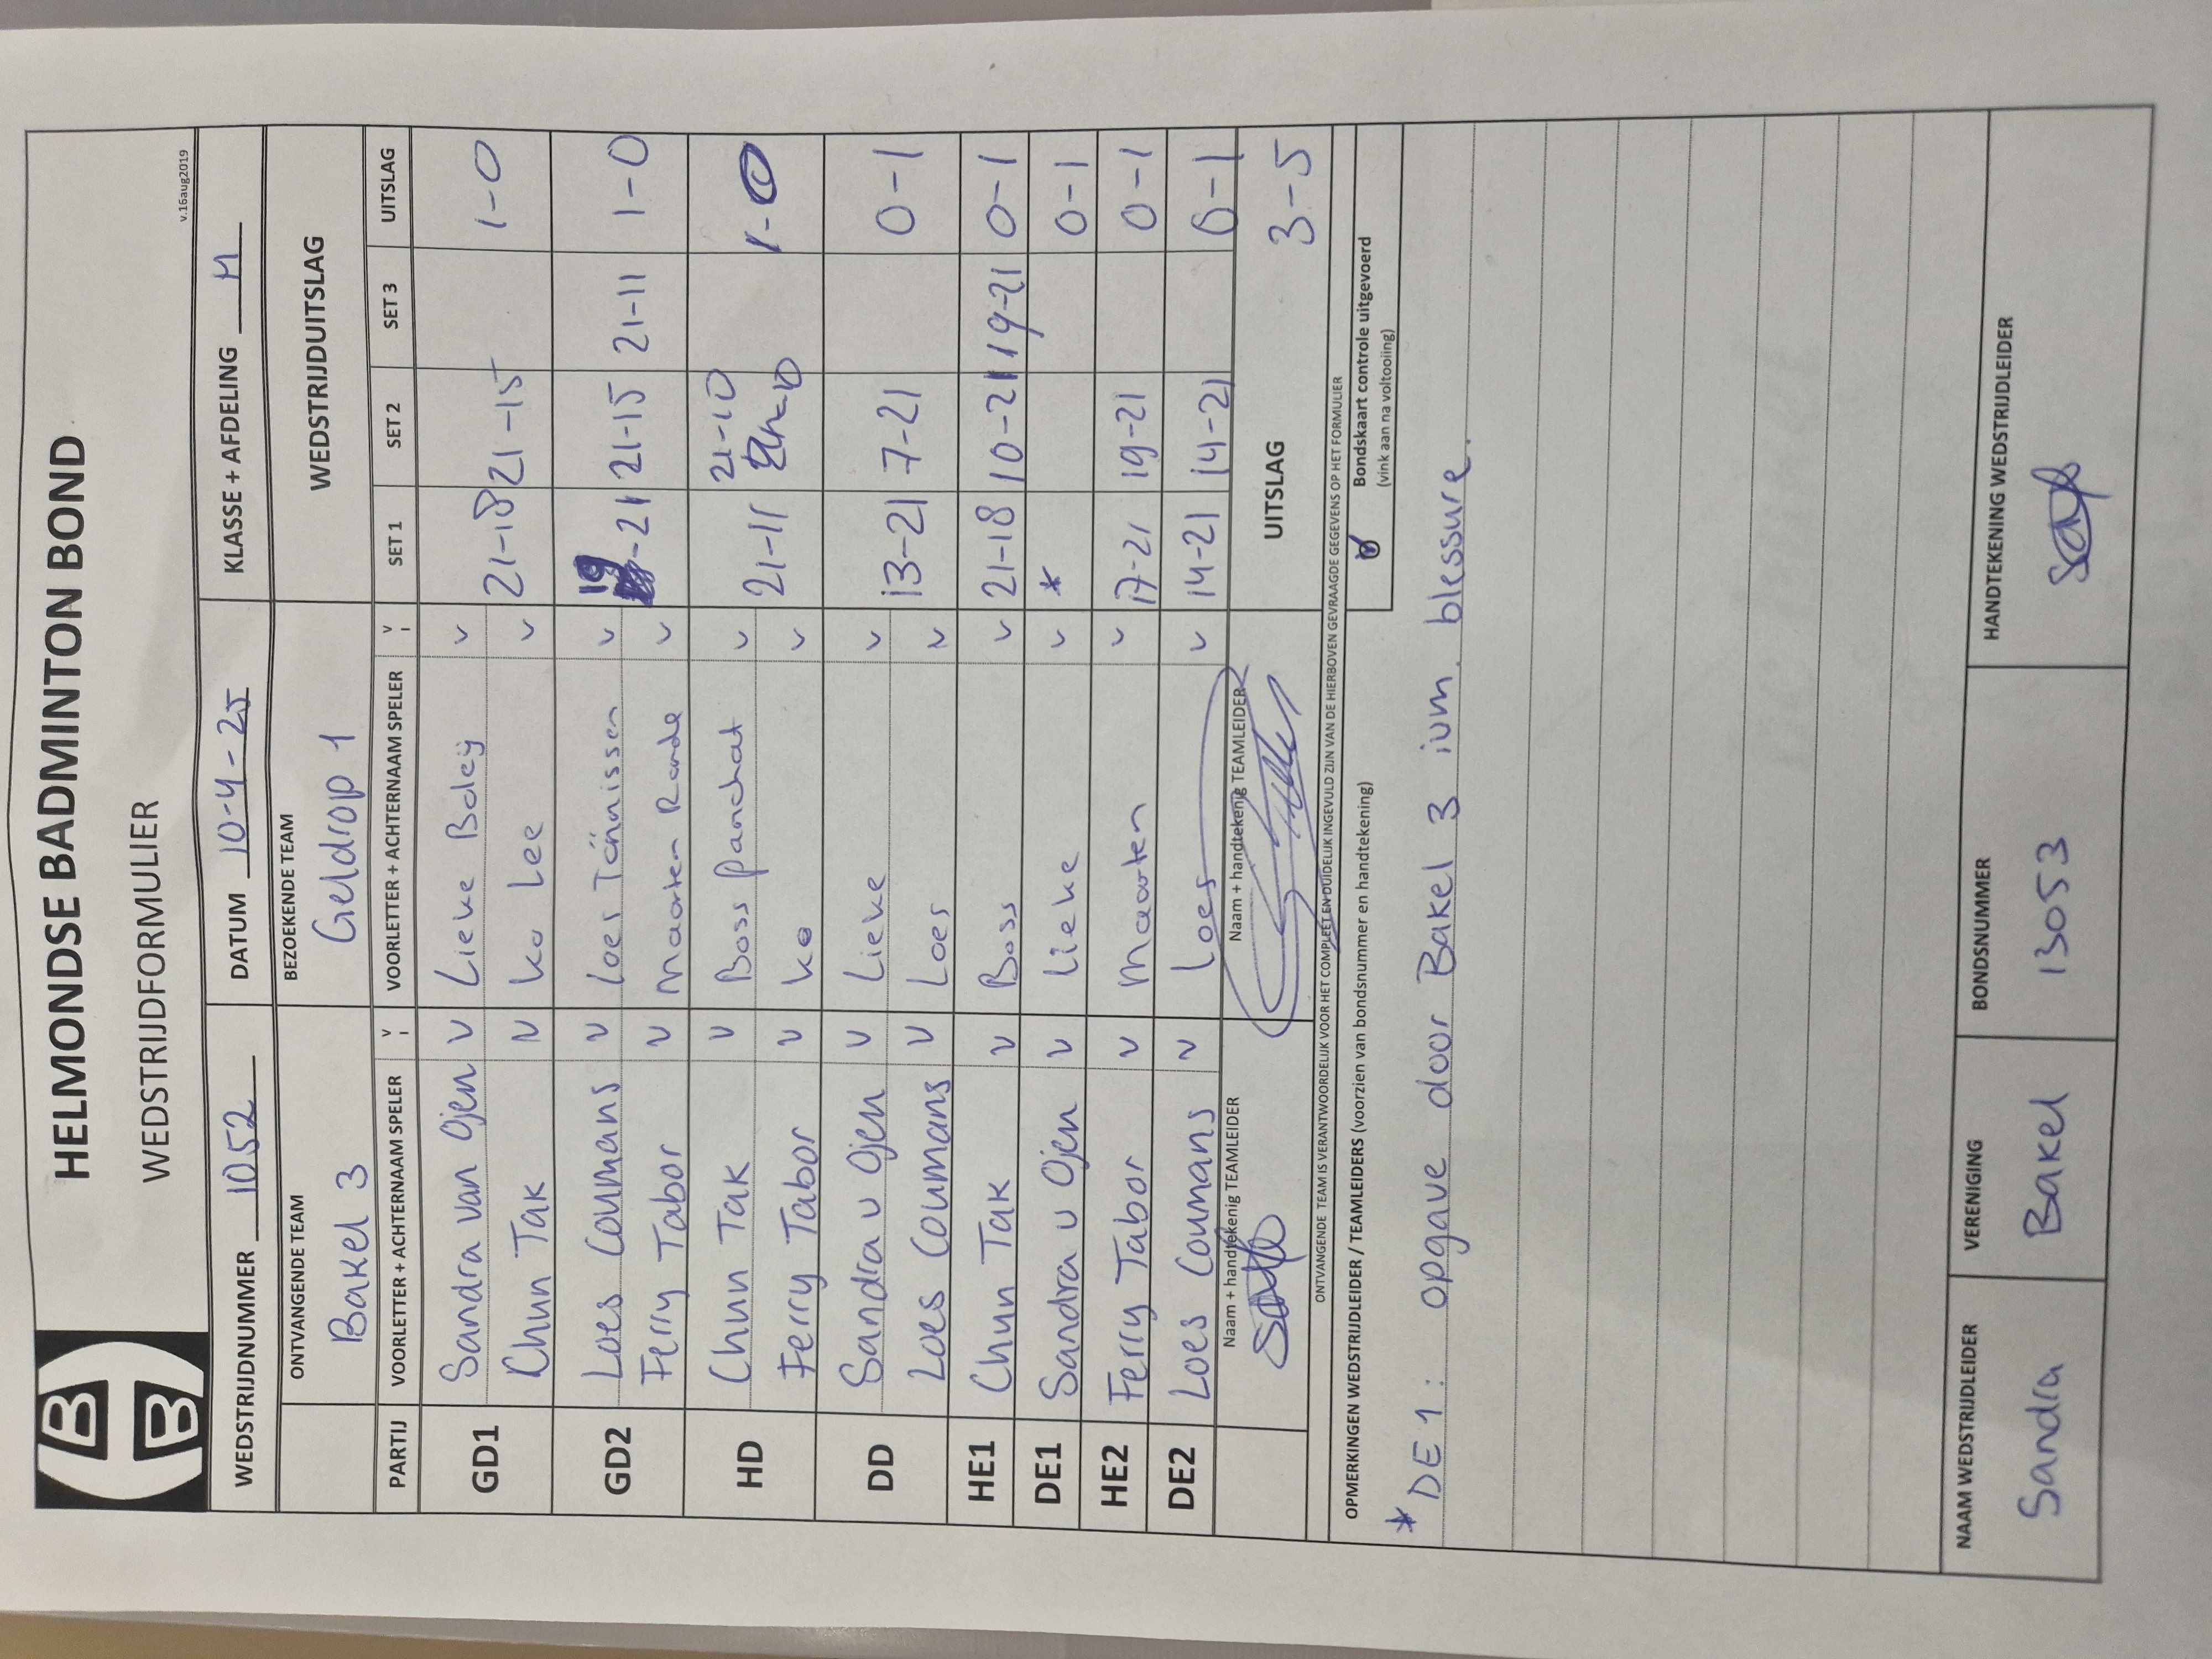 HELMONDSE BADMINTON BOND
WEDSTRIJDFORMULIER
v.16aug2019
WEDSTRIJDNUMMER 1052 DATUM 10-4-25 KLASSE + AFDELING H
ONTVANGENDE TEAM BEZOEKENDE TEAM WEDSTRIJDUITSLAG
Bakel 3 Geldrop 1
PARTIJ VOORLETTER + ACHTERNAAM SPELER V VOORLETTER + ACHTERNAAM SPELER V SET 1 SET 2 SET 3 UITSLAG
GD1 Sandra van Ojen v Lieke Boleij v 21-18 21-15 1-0
Chun Tak v Ka Lee v
GD2 Loes Coumans v Loes Tönnissen v 19-21 21-15 21-11 1-0
Ferry Tabor v Maarten Rande v
HD Chun Tak v Boss Panchat v 21-11 21-10 1-0
Ferry Tabor v Ka v
DD Sandra v Ojen v Lieke v 13-21 7-21 0-1
Loes Coumans v Loes v
HE1 Chun Tak v Boss v 21-18 10-21 19-21 0-1
DE1 Sandra v Ojen v Lieke v * 0-1
HE2 Ferry Tabor v Maarten v 17-21 19-21 0-1
DE2 Loes Coumans v Loes v 14-21 14-21 0-1
Naam + handtekenig TEAMLEIDER Naam + handtekenig TEAMLEIDER UITSLAG 3-5
ONTVANGENDE TEAM IS VERANTWOORDELIJK VOOR HET COMPLEET EN DUIDELIJK INGEVULD ZIJN VAN DE HIERBOVEN GEVRAAGDE GEGEVENS OP HET FORMULIER
OPMERKINGEN WEDSTRIJDLEIDER / TEAMLEIDERS (voorzien van bondsnummer en handtekening)
Bondskaart controle uitgevoerd
(vink aan na voltooiing)
* DE1: opgave door Bakel 3 ivm. blessure.
NAAM WEDSTRIJDLEIDER VERENIGING BONDSNUMMER HANDTEKENING WEDSTRIJDLEIDER
Sandra Bakel 13053